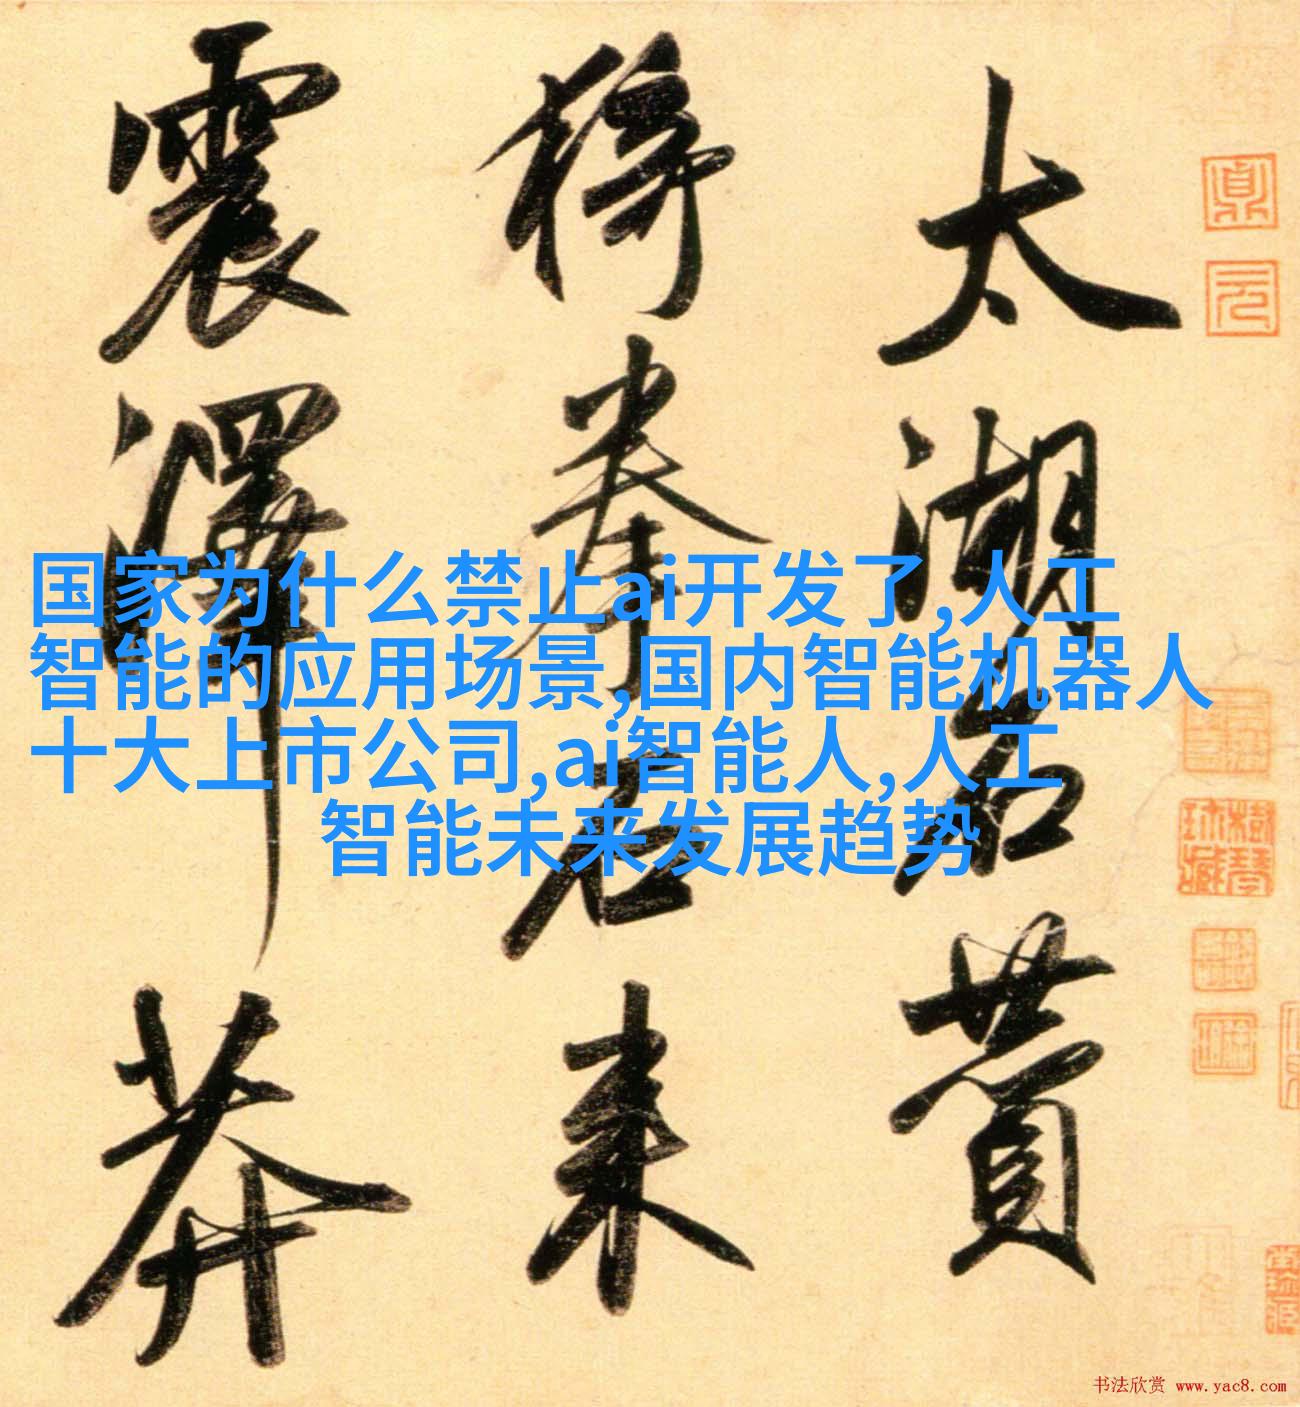 太湖石贊
猗拳石来
震澤莽
国家为什么禁止ai开发了,人工
智能的应用场景,国内智能机器人
十大上市公司,ai智能人,人工
智能未来发展趋势
书法欣赏 www.yac8.com